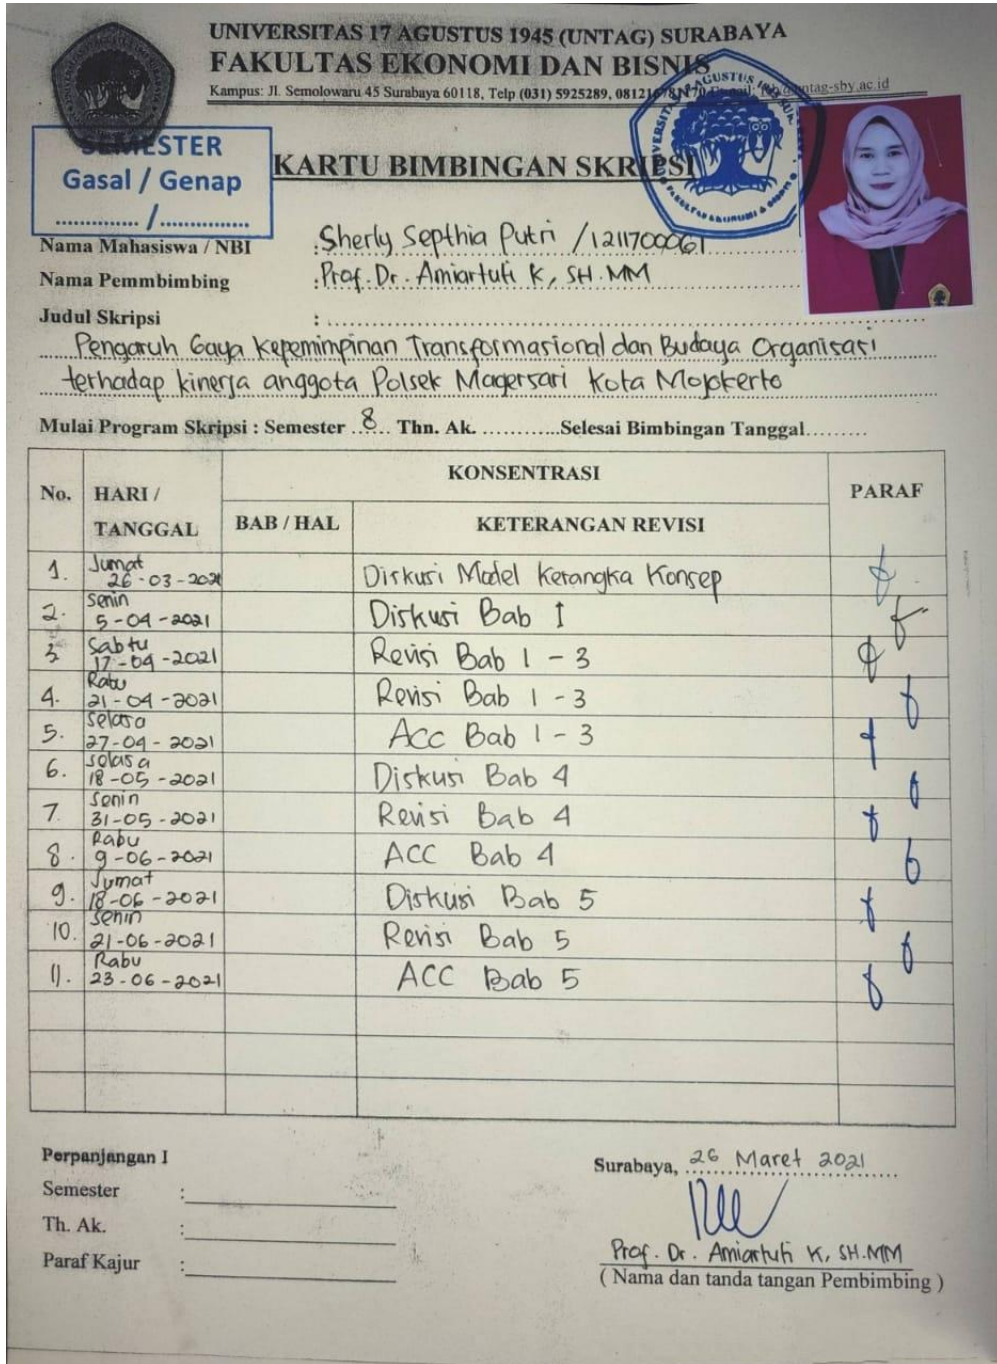 UNIVERSITAS 17 AGUSTUS 1945 (UNTAG) SURABAYA
FAKULTAS EKONOMI DAN BISNIS
Kampus: Jl. Semolowaru 45 Surabaya 60118, Telp (031) 5925289,
SEMESTER
Gasal / Genap
............. /..............
KARTU BIMBINGAN SKRIPSI
Nama Mahasiswa / NBI : Sherly Septhia Putri / 1211700061
Nama Pemmbimbing : Prof. Dr. Amiartuti K, SH. MM
Judul Skripsi :
Pengaruh Gaya Kepemimpinan Transformasional dan Budaya Organisasi
terhadap kinerja anggota Polsek Magersari Kota Mojokerto
Mulai Program Skripsi : Semester ..8... Thn. Ak. ............Selesai Bimbingan Tanggal.........
No. HARI / TANGGAL KONSENTRASI PARAF
BAB / HAL KETERANGAN REVISI
1. Jumat 26-03-2021 Diskusi Model Kerangka Konsep
2. Senin 5-04-2021 Diskusi Bab I
3 Sabtu 17-04-2021 Revisi Bab 1 - 3
4. Rabu 21-04-2021 Revisi Bab 1 - 3
5. Selasa 27-04-2021 Acc Bab 1 - 3
6. Selasa 18-05-2021 Diskusi Bab 4
7. Senin 31-05-2021 Revisi Bab 4
8. Rabu 9-06-2021 ACC Bab 4
9. Jumat 18-06-2021 Diskusi Bab 5
10. Senin 21-06-2021 Revisi Bab 5
11. Rabu 23-06-2021 ACC Bab 5
Perpanjangan I
Semester :
Th. Ak. :
Paraf Kajur :
Surabaya, 26 Maret 2021
Prof. Dr. Amiartuti K, SH.MM
( Nama dan tanda tangan Pembimbing )